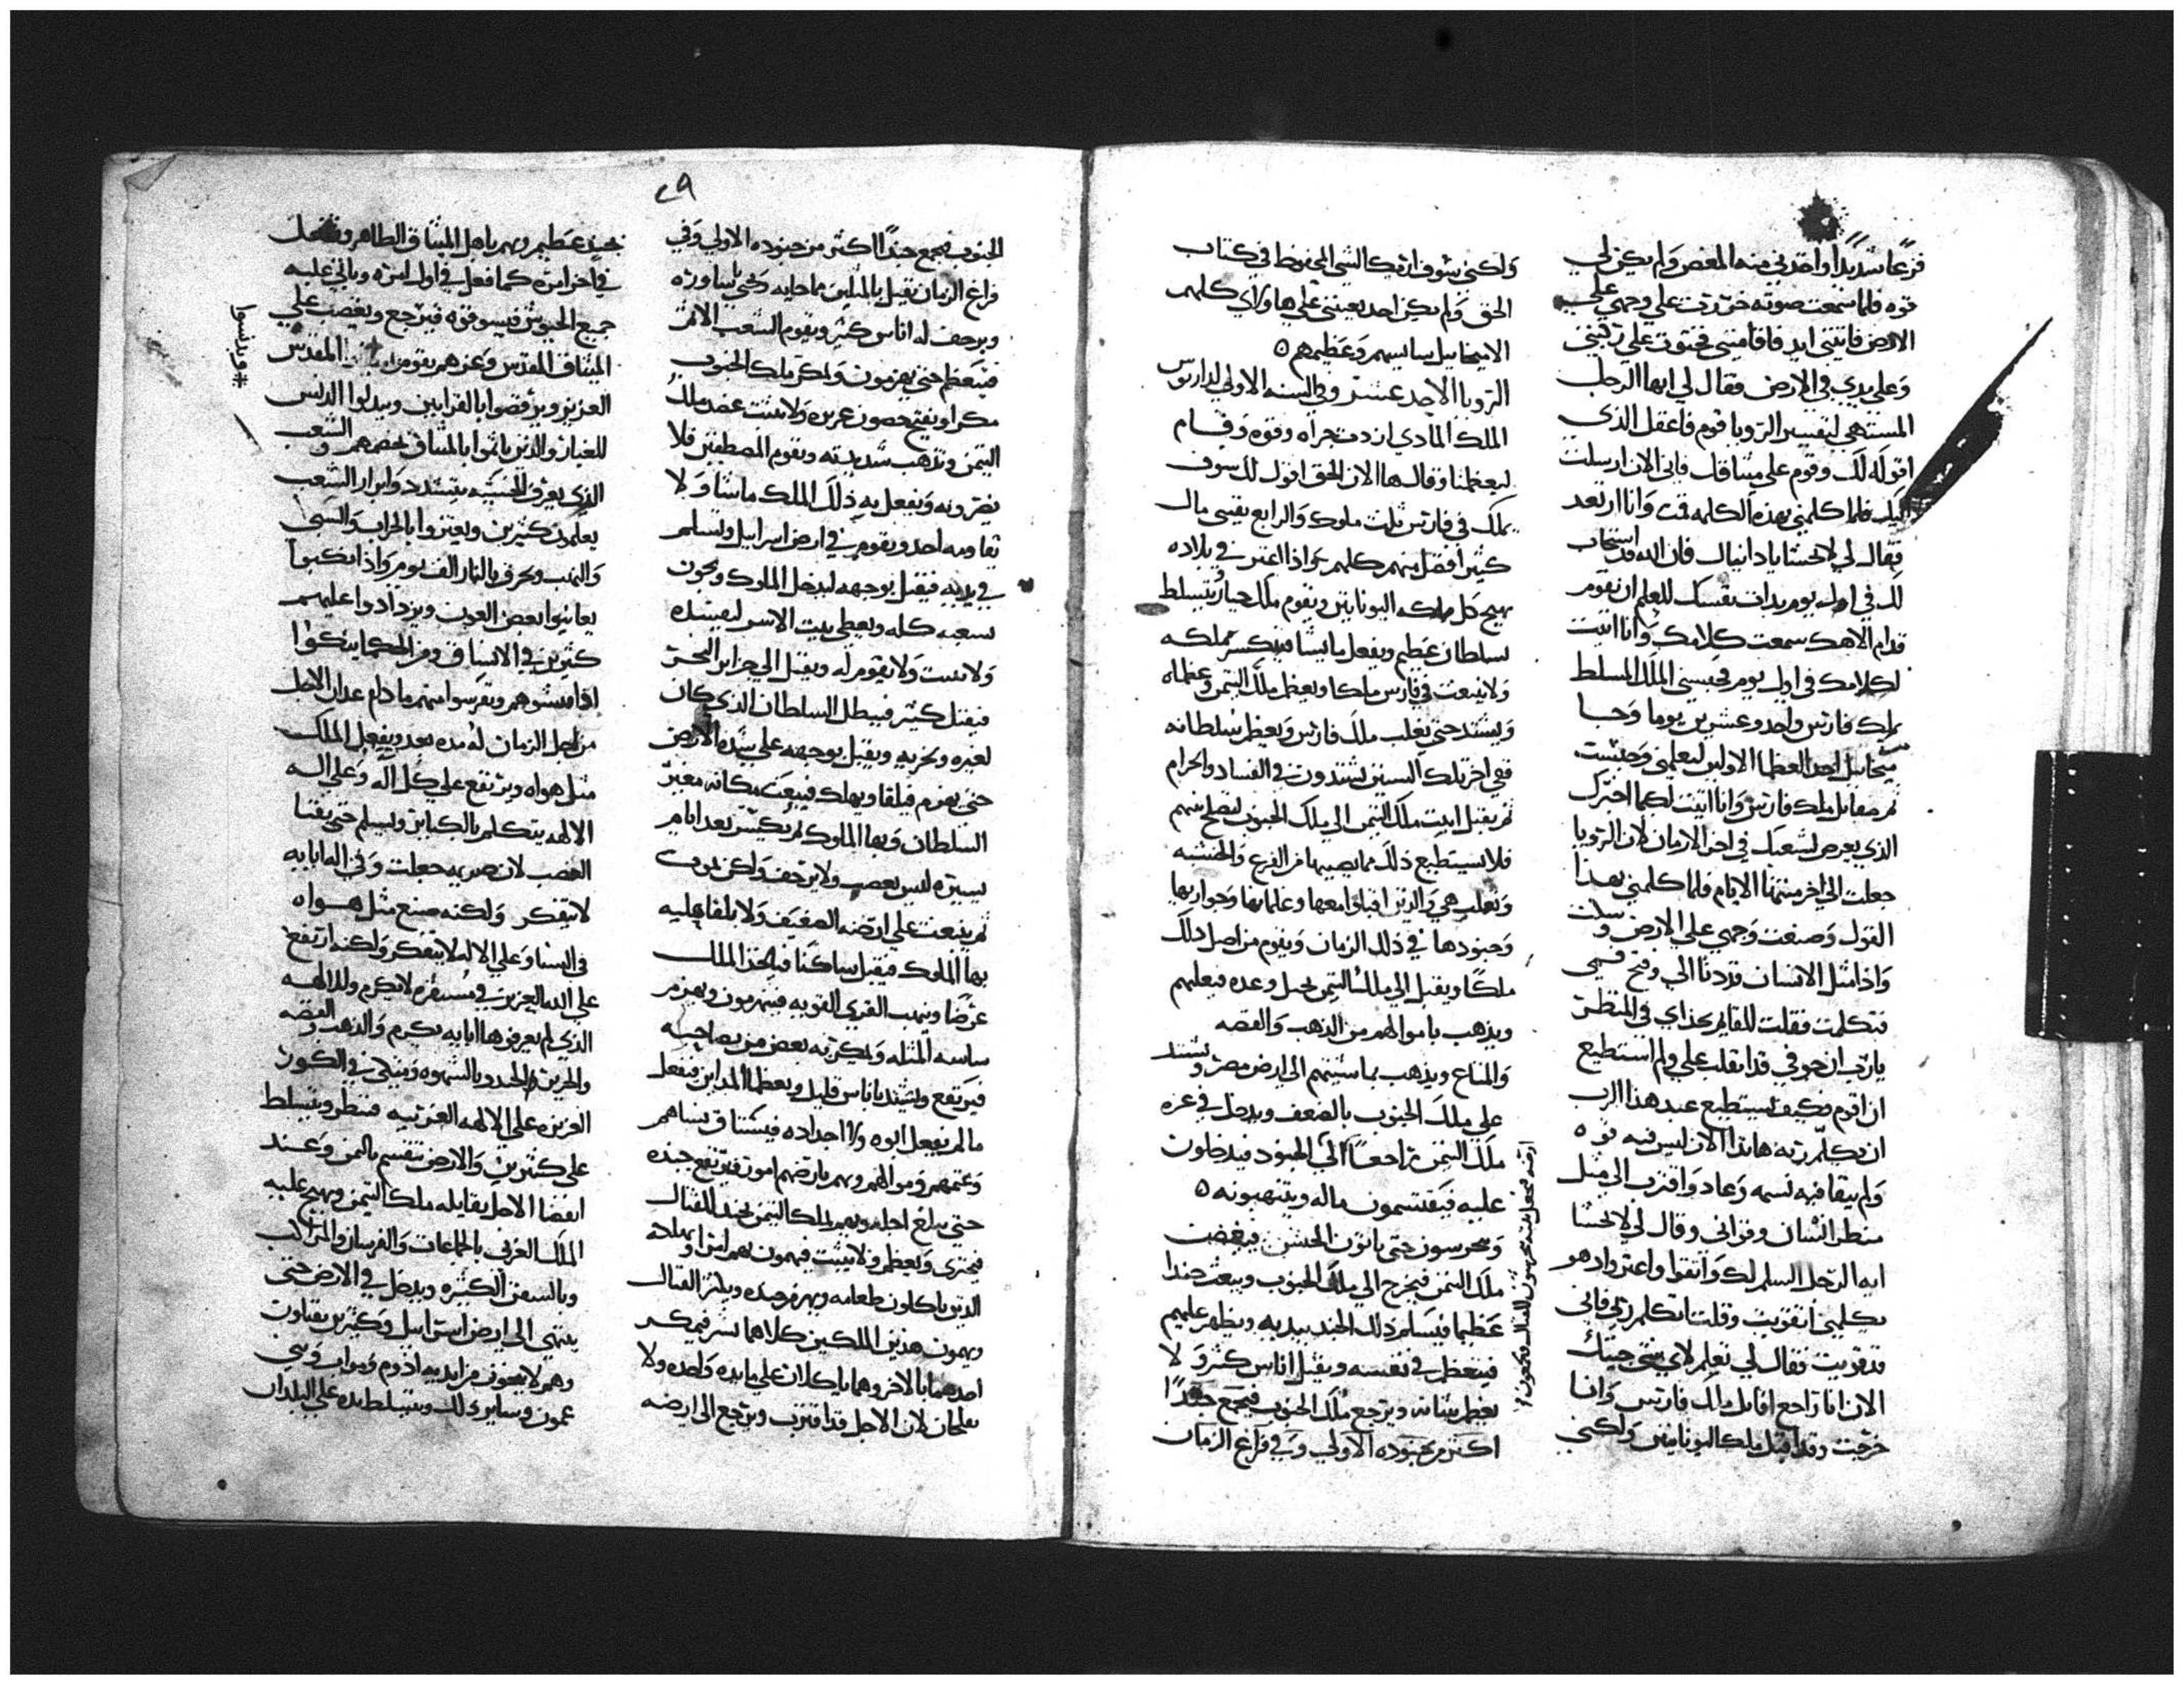 فزعًا شديدًا واخدني منه المغص ولم يكن لي
قوه فلما سمعت صوته خررت علي وجهي علي
الارض فاتتني ايد فاقامتني فجثوت علي ركبتي
وعلي يدي في الارض فقال لي ايها الرجل
المستهي لتفسير الرويا قوم فاعقل الذي
اقوله لك وقوم علي ميثاقك فاني الان ارسلت
اليك فلما كلمني بهذه الكلمه قمت وانا ارتعد
فقال لي لا تخشا يا دانيال فان الله قد استجاب
لك في اول يوم بدات بنفسك للعلم ان تقوم
قدام الاهك سمعت كلامك وانا اتيت
لكلامك في اول يوم فحبسني الملك المسلط
بملك فارس واحد وعشرين يوما وجا
ميخاييل احد العظما الاولين ليعلمني وحبست
ثم مقابل ملك فارس وانا اتيت لكما اخبرك
الذي يعرض لشعبك في اخر الازمان لان الرويا
جعلت الي اخر منتها الايام فلما كلمني بهذا
القول وضعت وجهي علي الارض وسكت
واذا مثل الانسان قد دنا الي وفتح فمي
فتكلمت فقلت للقايم بحذاي في المنظر
يا رب ان جوفي قد انقلب علي ولم استطيع
ان اقوم فكيف يستطيع عبد هذا الرب
ان يكلم ربه هاندا الان ليس فيه قوه
ولم يبقا فيه نسمه وعاد واقترب الي مثل
منظر انسان وقواني وقال لي لا تخشا
ايه الرجل السلم لك واتقوا واعتز وادهو
يكلمني اتقويت وقلت اتكلم ربي فاني
قد قويت فقال لي تعلم لاي شي جيتك
الان انا راجع اقاتل ملك فارس وانا
خرجت وقد اقبل ملك اليونانيين ولكني
ولكني سوف اريك الشي المحفوظ في كتاب
الحق ولم يكن احد يعينني علي هاولاي كلهم
الا ميخاييل سايسهم وعظيمهم ه
الرويا الاحد عشر وفي السنه الاولي لداريوس
الملك المادي ازددت جراه وقوه وقام
ليعظمنا وقال ها الان الحق اقول لك سوف
يملك في فارس ثلث ملوك والرابع يقسي مال
كثير افضل منهم كلهم واذا اعتز في بلاده
يهيج كل مملكه اليونانيين ويقوم ملك جبار ويتسلط
بسلطان عظيم ويفعل ما يشا فينكسر مملكه
ولا ينبعث في فارس ملكا ويعظم ملك التيمن وعظماه
ويشتد حتي يغلب ملك فارس ويعظم سلطانه
ففي اخر تلك السنين يشتدون في الفساد والحرام
ثم يقبل ابنت ملك التيمن الي ملك الجنوب لتصلح بينهم
فلا تستطيع ذلك مما يصيبها من الفزع والخشيه
وتغلب هي والذين اقبلوا معها وغلمانها وجواريها
وجنودها في ذلك الزمان ويقوم من اصل ذلك
ملكا ويقبل الي ملك التيمن بحيل وعده فيغلبهم
ويذهب باموالهم من الذهب والفضه
والمتاع ويذهب بماشيتهم الي ارض مصر ويشتد
علي ملك الجنوب بالضعف ويدخل في عزه
ملك التيمن راجعًا الي الجنود فيدخلون
عليه فيقتسمون ماله وينتهبونه ه
ويحرسون حتي ياتون الجيش فيغضب
ملك التيمن فيخرج الي ملك الجنوب ويبعث جندا
عظيما فيسلم ذلك الجند بيديه ويظهر عليهم
فيتعظم في نفسه ويقتل اناس كثير ولا
يعظم شانه ويرجع ملك الجنوب فيجمع جندًا
اكثر من جنوده الاولي وفي فراغ الزمان
٢٩
الجنوب فيجمع جندًا اكثر من جنوده الاولي وفي
فراغ الزمان يقبل
ويرجف له اناس كثير ويقوم الشعب الاثم
فيتعظم حتي يهزمون ويمكر ملك الجنوب
مكرا ويفتح حصون عزيزه ولا يثبت عضد ملك
التيمن وتذهب شديدته ويقوم المصطفين فلا
يضرونه ويفعل به ذلك الملك ما شا ولا
يقاومه احد ويقوم في ارض اسراييل وتسلم
في يديه فيقبل بوجهه ليدخل الملوك ويحون
بشعبه كله ويعطي بيت الاسر ليفسده
ولا تثبت ولا يقوم له ويقبل الي جزاير البحر
فيقتل كثير فيبطل السلطان الذي كان
لغيره وبحربه ويقبل بوجهه علي شده الارض
حتي يهزم فيلقا ويهلك فيبعث مكانه مغير
السلطان وبها الملوك ثم يكسر بعد ايام
يسيره ليس بغضب ولا برجف ولكن بموت
ثم ينبعث علي ارضه الضعيف ولا يلقا عليه
بها الملوك فيقبل ساكنا فياخذ الملك
عرضا وينهب القري القويه فينهزمون ويهزم
فيرتفع ويشتد باناس قليل ويعظما المداين فيفعل
ما لم يفعل ابوه ولا اجداده فيشتاق نساهم
حتي يبلغ اجله ويهم بملك التيمن بجند للقتال
الذين ياكلون طعامه ويهزم جنده ويكثر القتال
ويهمون هذين الملكين كلاهما بشر فيمكر
احدهما بالاخر وهما ياكلان علي مايده واحده ولا
يفلحان لان الاجل قد اقترب ويرجع الي ارضه
بجند عظيم ويهم باهل الميثاق الطاهر ويفعل
في اخر امره كما فعل في اول امره وياتي عليه
جميع الجيوش فيسوقوه فيرجع ويغضب علي
الميثاق المقدس المقدس
العزيز ويرفضوا بالقرابين ويبدلوا الدنس
للغيار والذين ياثموا بالميثاق الشعب
الذي يعرف الخشيه يتشدد وابرار الشعب
يعلمون كثيرين ويعتزوا بالحراب والسبي
والنهب وبحرق بالنار الف يوم واذا انكبوا
يعاينوا بعض العون ويزدادوا عليهم
كثيرين في الانساق ومن الحكما ينكبوا
اذا فتشوهم ويفرسوا منهم ما دام عدان الاجل
من اجل الزمان له مده بعد ويفعل الملك
مثل هواه ويرتفع علي كل اله وعلي اله
الالهه يتكلم بالكباير ويسلم حتي يفنا
الغضب لان ضربه جعلت وفي اله ابايه
لا يتفكر ولكنه صنع مثل هواه
في النسا وعلي الاله لا يتفكر ولكنه ارتفع
علي الله العزيز في مستقره لا يكرم ولا الالهه
الذي لم يعرفوها ابايه يكرم والذهب والفضه
العزيزه علي الالهه الغريبه فينظر ويتسلط
علي كثيرين والارض تنقسم بالثمن وعند
انقضا الاجل يقابله ملك التيمن ويهيج عليه
الملك الغربي بالجماعات والفرسان والمراكب
وبالسفن الكثيره ويدخل في الارض حتي
ينتهي الي ارض اسراييل وكثيرين يقتلون
وهم لا ينجون من ايديه ادوم ومواب وبني
عمون وساير ذلك ويتسلط يده علي البلدان